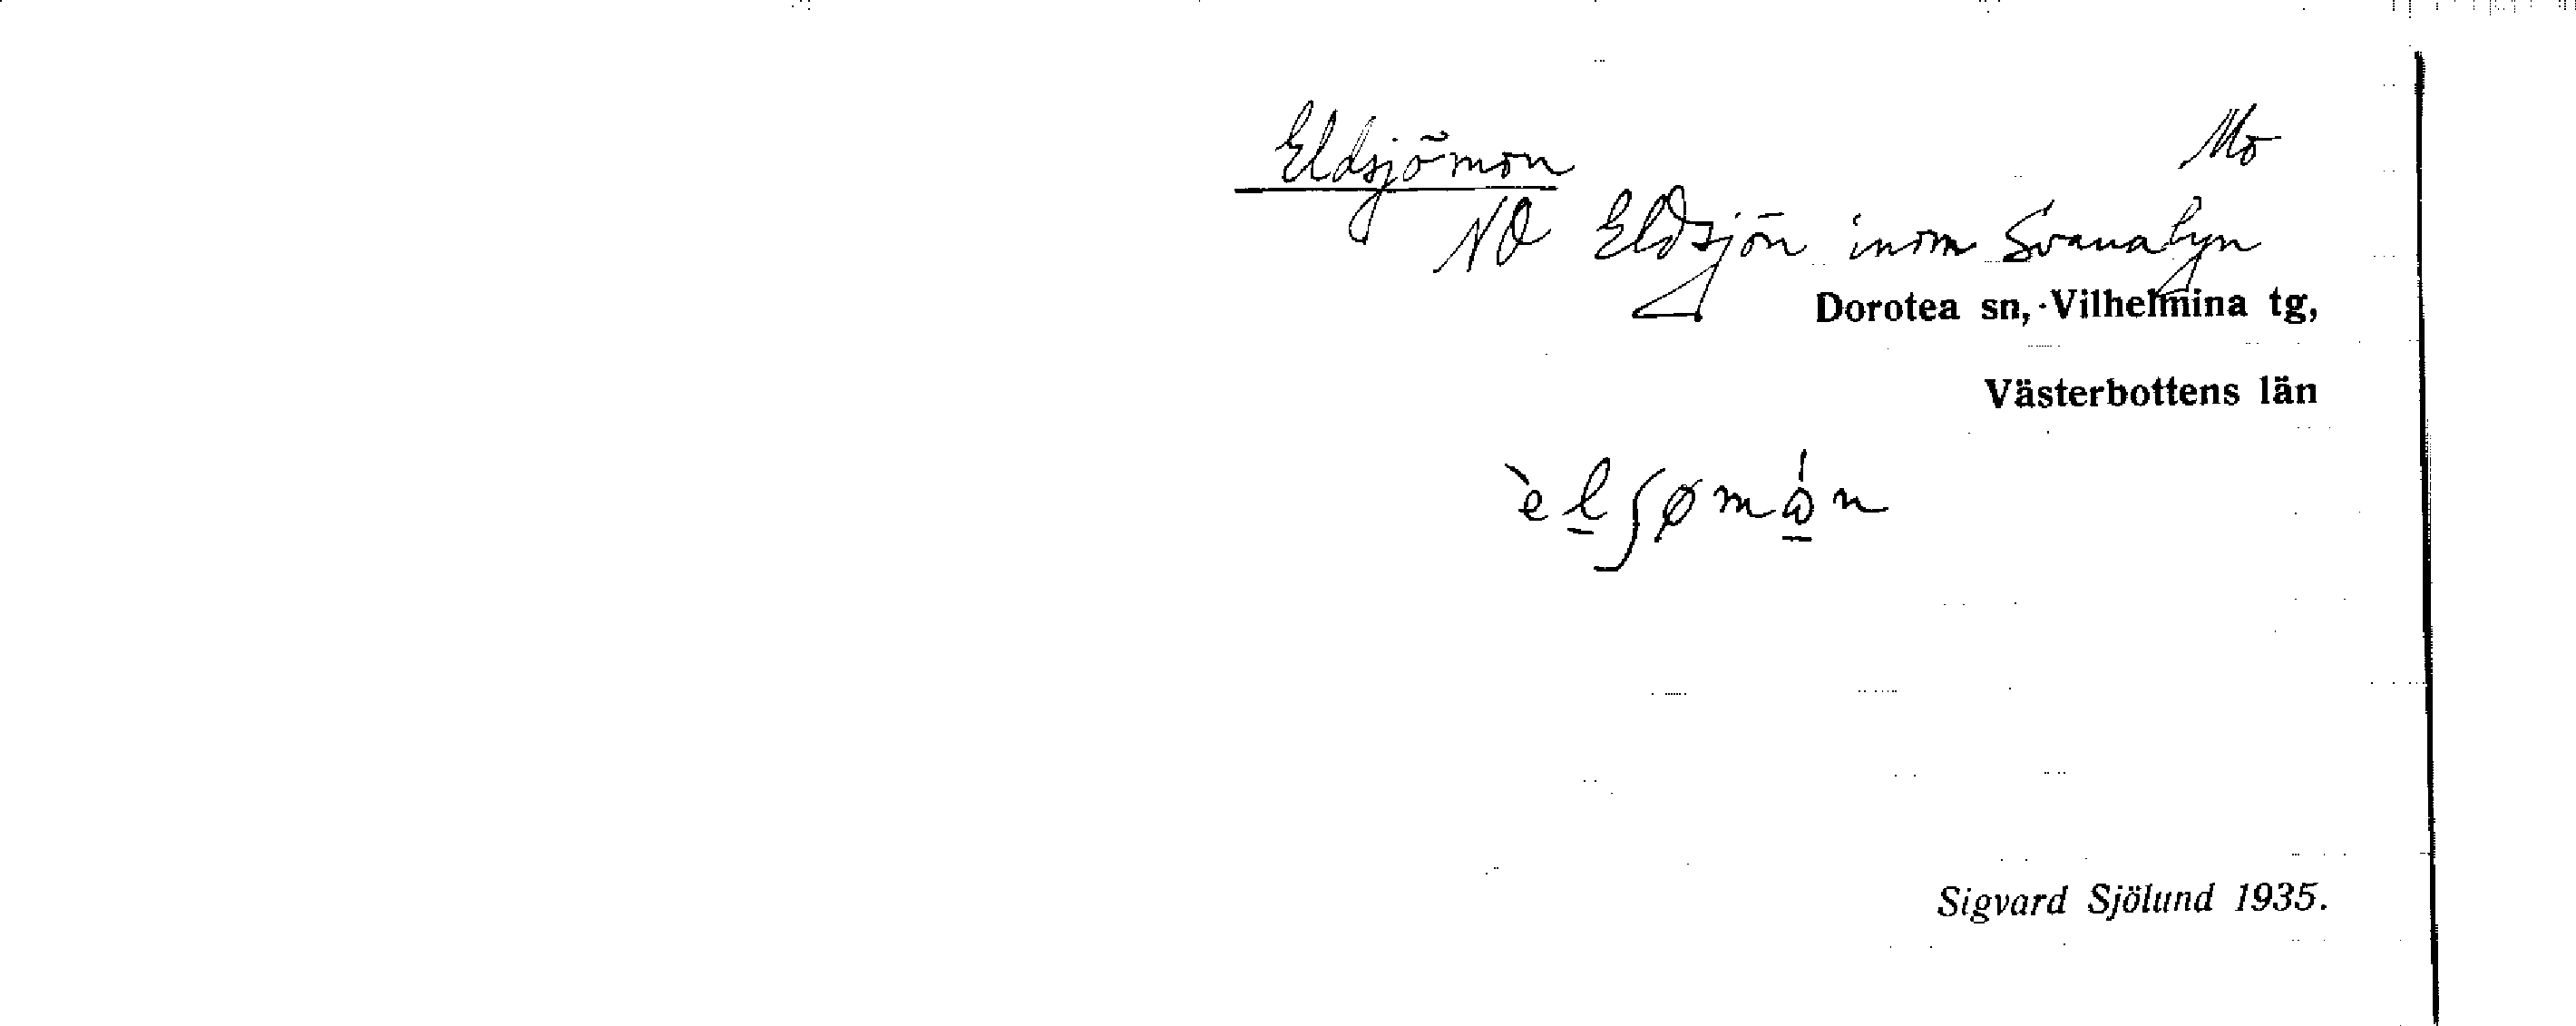 Eldsjömon Mo
NO Eldsjön inom Svanabyn
Dorotea sn, Vilhelmina tg,
Västerbottens län
èl̲ʃømȯ̲́n
Sigvard Sjölund 1935.